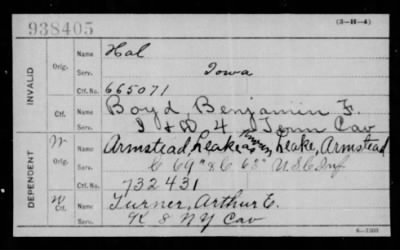 938405
(3-H-4)
INVALID
Orig.
Name
Hal
Serv.
Iowa
Ctf. No.
665071
Ctf.
Name
Boyd, Benjamin F.
Serv.
I & D 4 Tenn Cav
DEPENDENT
W
Orig.
Name
Armstead, Leake Leake, Armstead
Serv.
C 69" & C 63" U.S.C. Inf
Ctf. No.
732431
W
Ctf.
Name
Turner, Arthur E.
Serv.
K 8 NY Cav